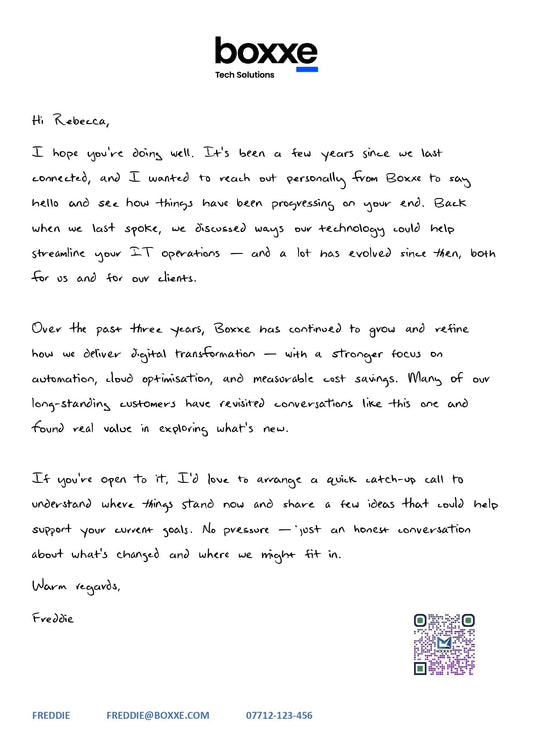 boxxe
Tech Solutions
Hi Rebecca,
I hope you're doing well. It's been a few years since we last
connected, and I wanted to reach out personally from Boxxe to say
hello and see how things have been progressing on your end. Back
when we last spoke, we discussed ways our technology could help
streamline your IT operations — and a lot has evolved since then, both
for us and for our clients.
Over the past three years, Boxxe has continued to grow and refine
how we deliver digital transformation — with a stronger focus on
automation, cloud optimisation, and measurable cost savings. Many of our
long-standing customers have revisited conversations like this one and
found real value in exploring what's new.
If you're open to it, I'd love to arrange a quick catch-up call to
understand where things stand now and share a few ideas that could help
support your current goals. No pressure — just an honest conversation
about what's changed and where we might fit in.
Warm regards,
Freddie
FREDDIE FREDDIE@BOXXE.COM 07712-123-456